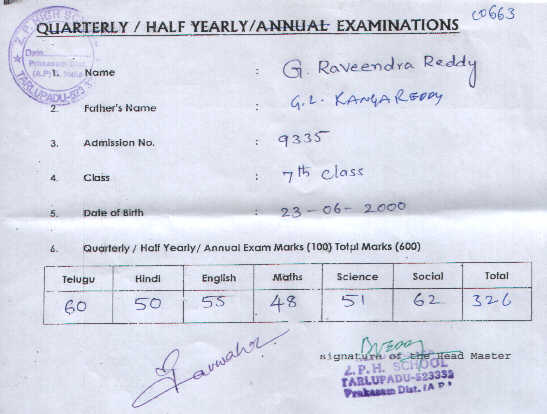 C0663
QUARTERLY / HALF YEARLY/ANNUAL EXAMINATIONS
Z.P. HIGH SCHOOL
Date
Prakasam Dist.
(A.P) India
TARLUPADU-523
1. Name : G. Raveendra Reddy
2. Father's Name : G.L. KANGA REDDY
3. Admission No. : 9335
4. Class : 7th class
5. Date of Birth : 23-06-2000
6. Quarterly / Half Yearly/ Annual Exam Marks (100) Total Marks (600)
Telugu Hindi English Maths Science Social Total
60 50 55 48 51 62 326
signature of the Head Master
Z.P.H. SCHOOL
TARLUPADU-523332
Prakasam Dist. (A.P.)